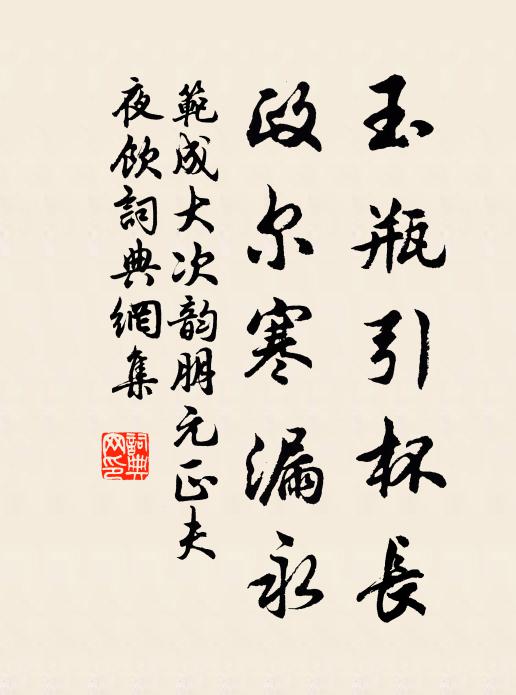 玉瓶引杯長
政尔寒漏永
範成大次韵朋元正夫
夜飲詞典網集
詞典網印